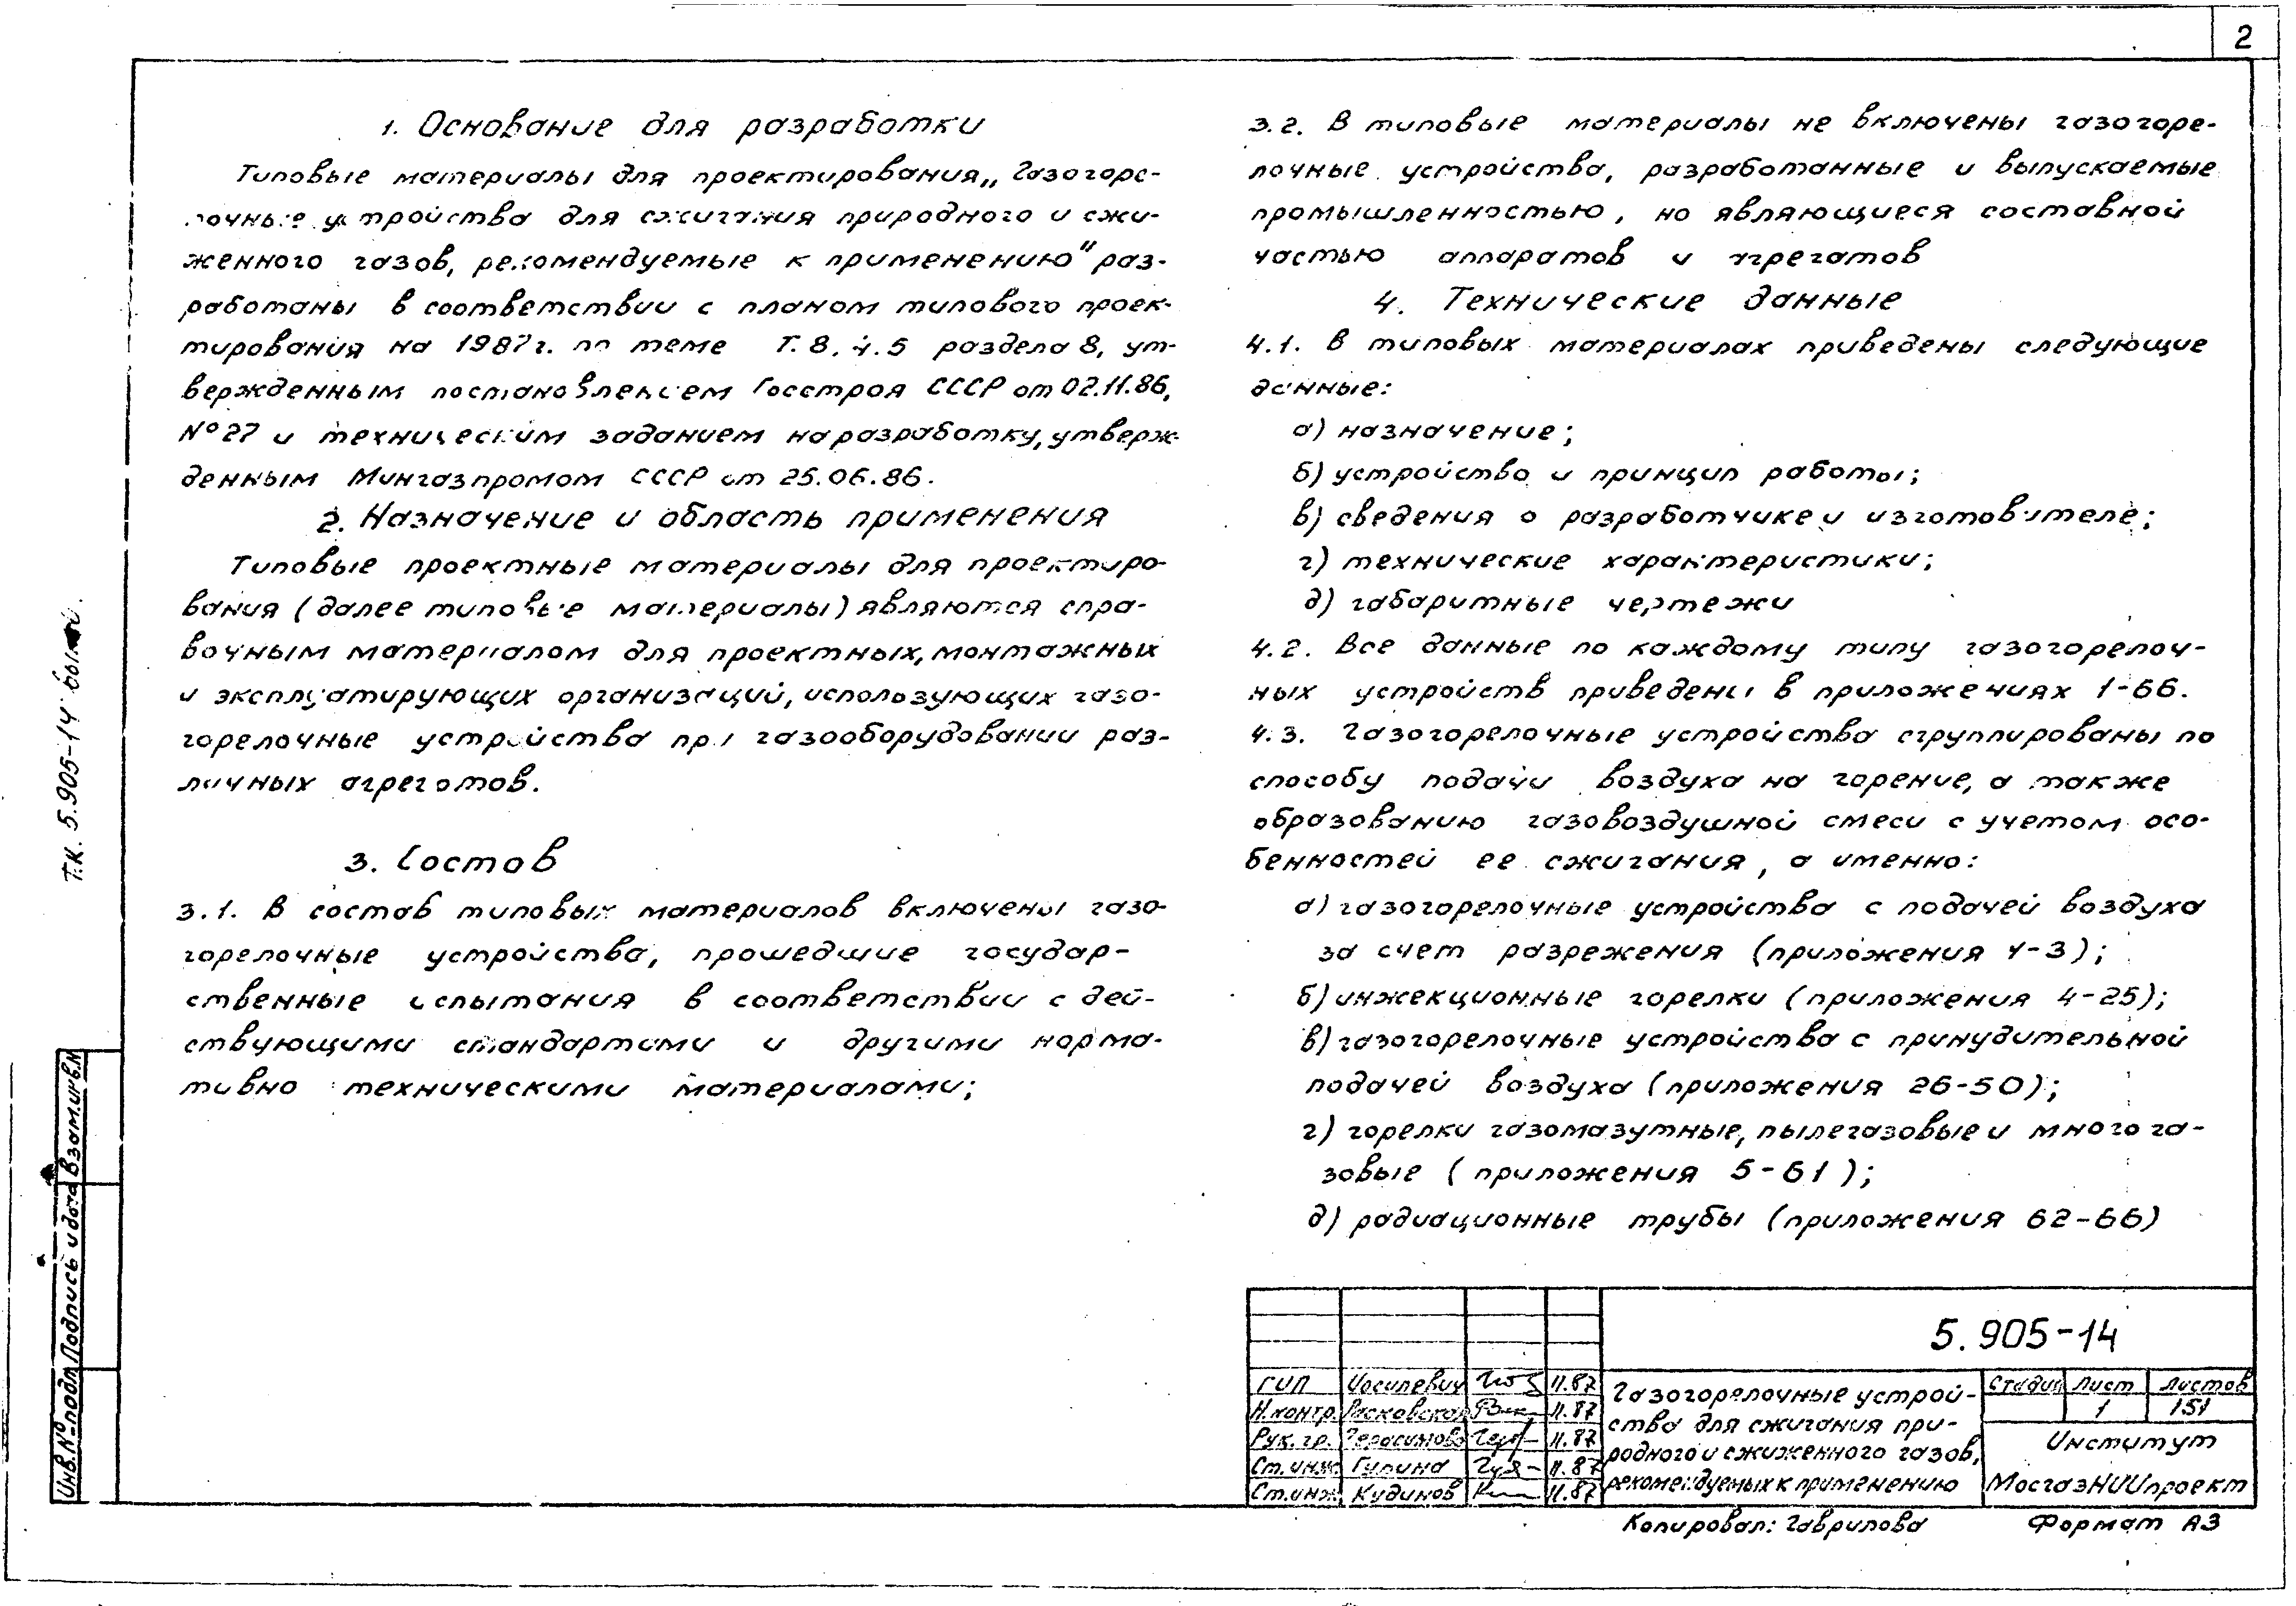 2
1. Основание для разработки
Типовые материалы для проектирования „Газогоре-
лочные устройства для сжигания природного и сжи-
женного газов, рекомендуемые к применению" раз-
работаны в соответствии с планом типового проек-
тирования на 1987г. по теме Т.8.4.5 раздела 8, ут-
вержденным постановлением Госстроя СССР от 02.11.86,
№27 и техническим заданием на разработку, утверж-
денным Мингазпромом СССР от 25.06.86.
2. Назначение и область применения
Типовые проектные материалы для проектиро-
вания (далее типовые материалы) являются спра-
вочным материалом для проектных, монтажных
и эксплуатирующих организаций, использующих газо-
горелочные устройства при газооборудовании раз-
личных агрегатов.
3. Состав
3.1. В состав типовых материалов включены газо-
горелочные устройства, прошедшие государ-
ственные испытания в соответствии с дей-
ствующими стандартами и другими норма-
тивно техническими материалами;
3.2. В типовые материалы не включены газогоре-
лочные устройства, разработанные и выпускаемые
промышленностью, но являющиеся составной
частью аппаратов и агрегатов
4. Технические данные
4.1. В типовых материалах приведены следующие
данные:
а) назначение;
б) устройство и принцип работы;
в) сведения о разработчике и изготовителе;
г) технические характеристики;
д) габаритные чертежи
4.2. Все данные по каждому типу газогорелоч-
ных устройств приведены в приложениях 1-66.
4.3. Газогорелочные устройства сгруппированы по
способу подачи воздуха на горение, а также
образованию газовоздушной смеси с учетом осо-
бенностей ее сжигания, а именно:
а) газогорелочные устройства с подачей воздуха
за счет разрежения (приложения 1-3);
б) инжекционные горелки (приложения 4-25);
в) газогорелочные устройства с принудительной
подачей воздуха (приложения 26-50);
г) горелки газомазутные, пылегазовые и многога-
зовые (приложения 5-61);
д) радиационные трубы (приложения 62-66)
Т.К. 5.905-14
Взам.инв.№
Подпись и дата
Инв.№подл.
5.905-14
ГИП Иосилевич 11.87
Н.контр. Расковская 11.87
Рук.гр. Герасимова 11.87
Ст.инж Гурина 11.87
Ст.инж Кудинов 11.87
Газогорелочные устрой-
ства для сжигания при-
родного и сжиженного газов,
рекомендуемых к применению
Стадия Лист Листов
1 151
Институт
МосгазНИИпроект
Копировал: Гаврилова Формат А3